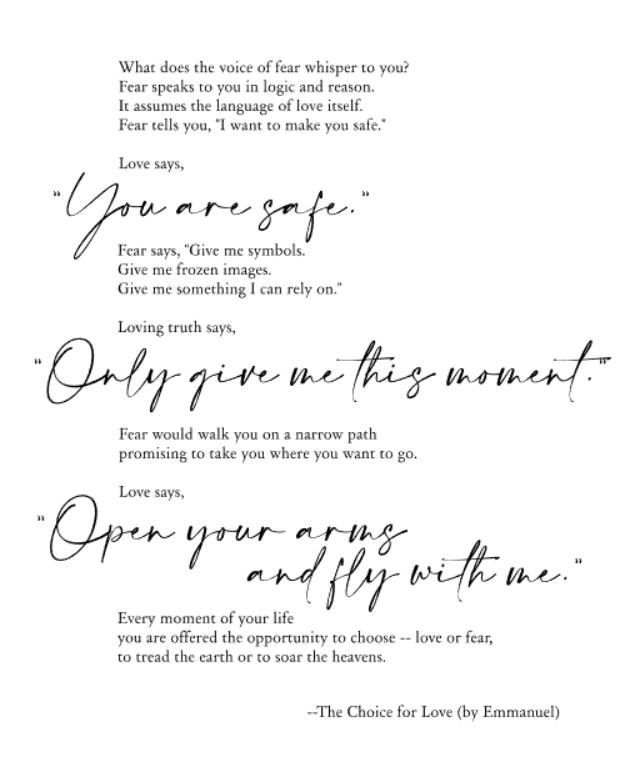 What does the voice of fear whisper to you?
Fear speaks to you in logic and reason.
It assumes the language of love itself.
Fear tells you, "I want to make you safe."
Love says,
"You are safe."
Fear says, "Give me symbols.
Give me frozen images.
Give me something I can rely on."
Loving truth says,
"Only give me this moment."
Fear would walk you on a narrow path
promising to take you where you want to go.
Love says,
"Open your arms
and fly with me."
Every moment of your life
you are offered the opportunity to choose -- love or fear,
to tread the earth or to soar the heavens.
--The Choice for Love (by Emmanuel)